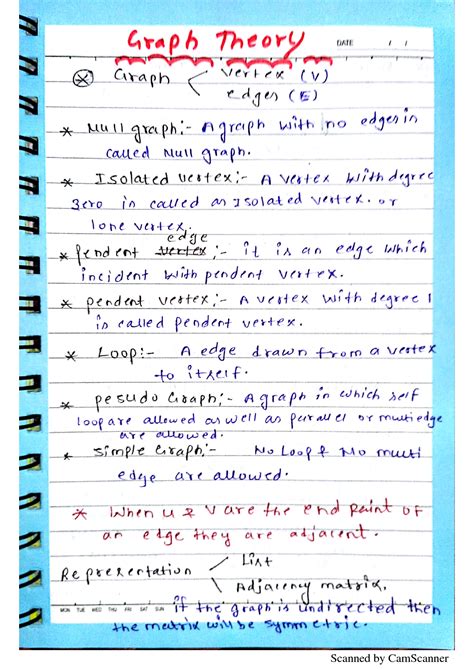 Graph Theory
DATE / /
Graph < Vertex (V)
edges (E)
* Null graph:- A graph with no edges in
called Null graph.
* Isolated vertex:- A vertex with degree
zero is called as Isolated vertex. or
lone vertex.
edge
* Pendent vertex:- it is an edge which
incident with pendent vertex.
* pendent vertex:- A vertex with degree 1
is called pendent vertex.
* Loop:- A edge drawn from a vertex
to itself.
* pesudo Graph:- A graph in which self
loop are allowed as well as parallel or multi edge
are allowed.
* Simple Graph:- No Loop & No multi
edge are allowed.
* When u & v are the end point of
an edge they are adjacent.
Representation < List
Adjacency matrix.
MON TUE WED THU FRI SAT SUN
if the graph is undirected then
the matrix will be symmetric.
Scanned by CamScanner